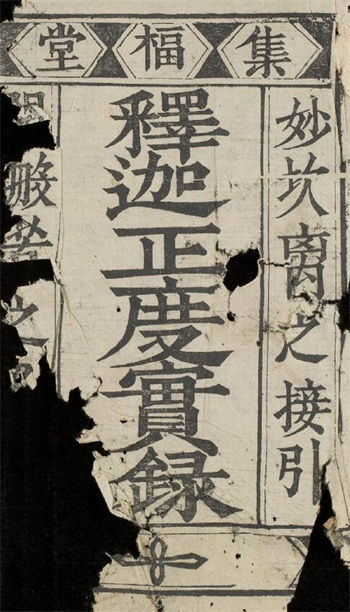 集福堂
妙坎离之接引
釋迦正度實録
般若之